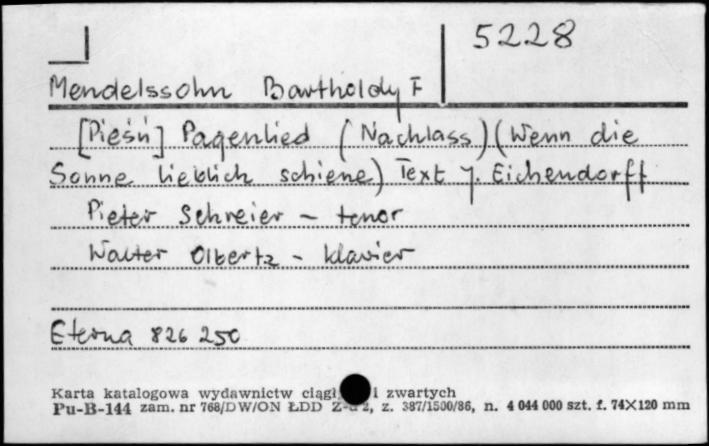 5228
Mendelssohn Bartholdy F
[Pieśń] Pagenlied (Nachlass) (Wenn die
Sonne lieblich schiene) Text J. Eichendorff
Pieter Schreier – tenor
Walter Olbertz – klavier
Eterna 826 250
Karta katalogowa wydawnictw ciągł i zwartych
Pu-B-144 zam. nr 768/DW/ON ŁDD z. 387/1500/86, n. 4 044 000 szt. f. 74X120 mm